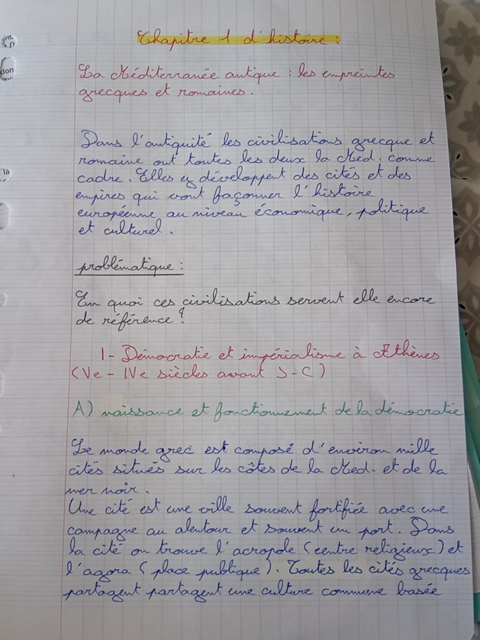 Chapitre 1 d'histoire :
La Méditerranée antique : les empreintes
grecques et romaines.
Dans l'antiquité les civilisations grecque et
romaine ont toutes les deux la Med. comme
cadre. Elles y développent des cités et des
empires qui vont façonner l'histoire
européenne au niveau économique, politique
et culturel.
problématique :
En quoi ces civilisations servent elle encore
de référence ?
I - Démocratie et impérialisme à Athènes
(Ve - IVe siècles avant J-C)
A) naissance et fonctionnement de la démocratie
Le monde grec est composé d'environ mille
cités situés sur les côtes de la Med. et de la
mer noir.
Une cité est une ville souvent fortifiée avec une
campagne au alentour et souvent un port. Dans
la cité on trouve l'acropole (centre religieux) et
l'agora (place publique). Toutes les cités grecques
partagent partagent une culture commune basée